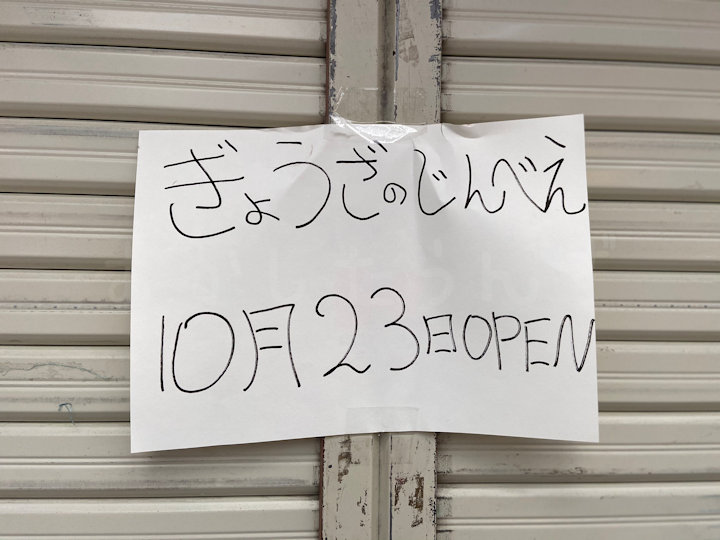 ぎょうざのじんべえ
10月23日OPEN